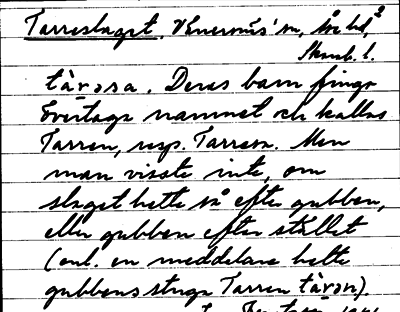 Tarreslaget.
Skarab. l.
tàrəsa. Deras barn fingo
övertaga namnet och kallas
Tarren, resp. Tarresa. Men
man visste inte, om
slaget hette så efter gubben,
eller gubben efter stället
(enl. en meddelare hette
gubbens stuga Tarren tàrən).